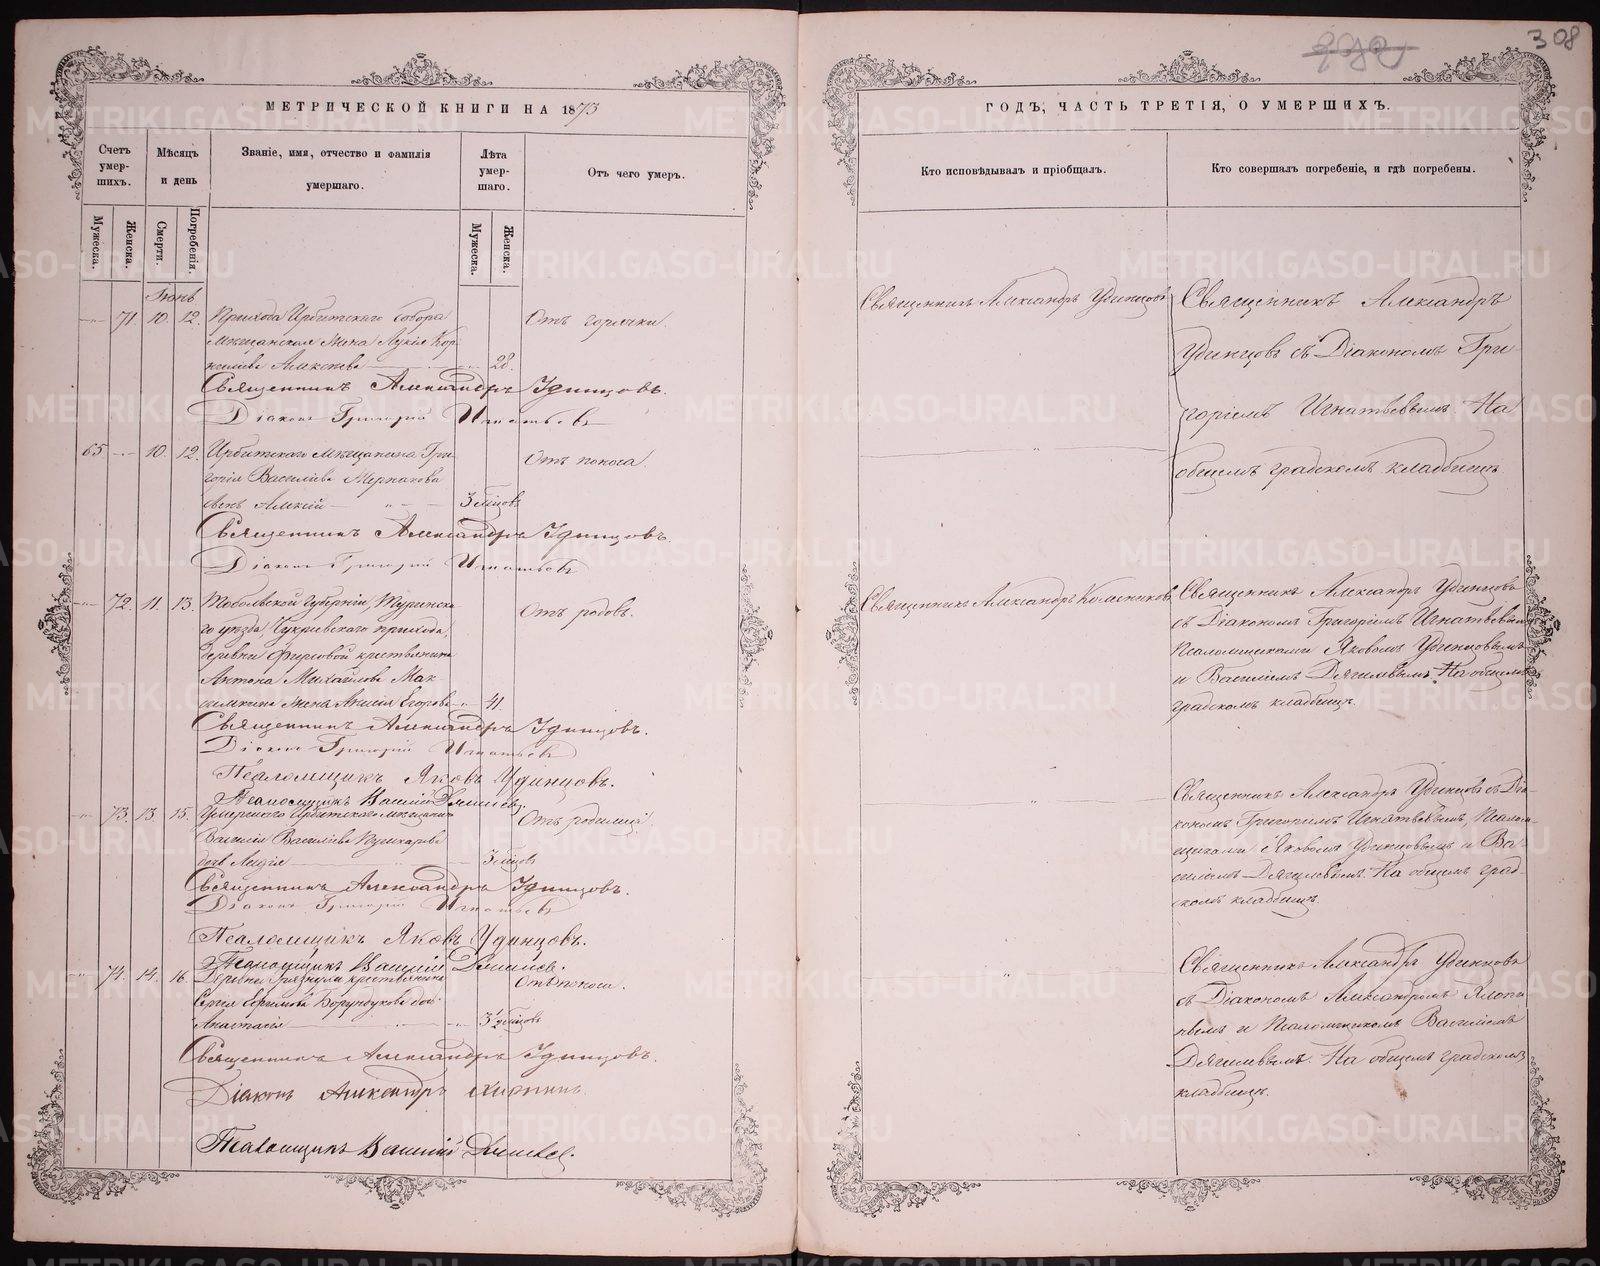 308
МЕТРИЧЕСКОЙ КНИГИ НА 1873
ГОДЪ, ЧАСТЬ ТРЕТІЯ, О УМЕРШИХЪ.
Счетъ умер-
шихъ.
Мѣсяцъ
и день
Званіе, имя, отчество и фамилія
умершаго.
Лѣта
умер-
шаго.
Отъ чего умеръ.
Кто исповѣдывалъ и пріобщалъ.
Кто совершалъ погребеніе, и гдѣ погребены.
Мужеска.
Женска.
Смерти.
Погребенія.
Мужеска.
Женска.
Іюнь
71. 10. 12. Прихода Ирбитскаго собора
мѣщанская жена Лукія Кор-
28.
Отъ горячки.
Священникъ Александръ Удинцовъ
Священникъ Александръ
Удинцовъ съ Діакономъ Гри-
горіемъ Игнатьевымъ. На
общемъ градскомъ кладбищѣ.
Священникъ Александръ Удинцовъ.
Діаконъ Григорій Игнатьевъ
65 10. 12. Ирбитскаго мѣщанина Гри-
горія Васильева
сынъ Алексій
3 мѣсцовъ
Отъ поноса.
Священникъ Александръ Удинцовъ.
Діаконъ Григорій Игнатьевъ
72. 11. 13. Тобольской губерніи, Туринска-
го уѣзда, прихода,
деревни крестьянина
Антона Михайлова Мак-
жена Егорова 41.
Отъ родовъ.
Священникъ Александръ Колесниковъ
Священникъ Александръ Удинцовъ
съ Діакономъ Григоріемъ Игнатьевымъ
Псаломщиками Яковомъ Удинцовымъ
и Василіемъ Дягилевымъ. На общемъ
градскомъ кладбищѣ.
Священникъ Александръ Удинцовъ.
Діаконъ Григорій Игнатьевъ
Псаломщикъ Яковъ Удинцовъ.
Псаломщикъ Василій Дягилевъ.
73. 13 15. Умершаго Ирбитскаго мѣщанина
Василія Васильева
дочь Лидія
3 мѣсцовъ
Отъ родимца
Священникъ Александръ Удинцовъ съ Діа-
кономъ Григоріемъ Игнатьевымъ, Псалом-
щиками Яковомъ Удинцовымъ и Ва-
силіемъ Дягилевымъ. На общемъ град-
скомъ кладбищѣ.
Священникъ Александръ Удинцовъ.
Діаконъ Григорій Игнатьевъ
Псаломщикъ Яковъ Удинцовъ.
Псаломщикъ Василій Дягилевъ.
74. 14. 16. Деревни крестьянина
Сергія Борундукова дочь
Анастасія
Отъ поноса.
Священникъ Александръ Удинцовъ
съ Діакономъ Александромъ Хлопи-
нымъ и Псаломщикомъ Василіемъ
Дягилевымъ. На общемъ градскомъ
кладбищѣ.
Священникъ Александръ Удинцовъ.
Діаконъ Александръ Хлопинъ
Псаломщикъ Василій Дягилевъ.
METRIKI.GASO-URAL.RU